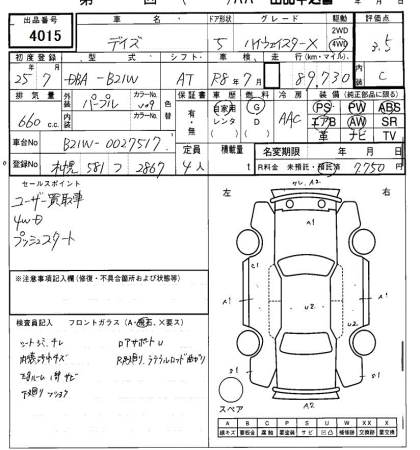 出品番号 車名 ドア形状 グレード 駆動 評価点
4015 デイズ 5 ハイウェイスターX 2WD 4WD 3.5
初度登録 型式 シフト 車検 走行(km・マイル) 内装
25年7月 DBA-B21W AT R8年7月 89,730 C
排気量 外装 パープル カラーNo. 色替 保証書 車歴 燃料 冷房 装備(純正部品に限る)
660 c.c. 内装 カラーNo. 有・無 自家用 レンタ G D AAC PS PW ABS
エアB AW SR
革 ナビ TV
車台No B21W-0027517 定員 積載量 名変期限 年 月 日
登録No 札幌 581 つ 2867 4人 t R料金 未預託・預託済 7,750円
セールスポイント
ユーザー買取車
4WD
プッシュスタート
左 右
A1
A1
A1
U2
U2
A2
※注意事項記入欄(修復・不具合箇所および状態等)
検査員記入 フロントガラス(A・飛石、X要ス)
シートシミ、ナレ
内張汚キズ
下廻り
スペア
A B C P S U W X XX X
線キズ 要板金 腐触 要塗装 サビ 凹凸 補修跡 交換跡 要交換